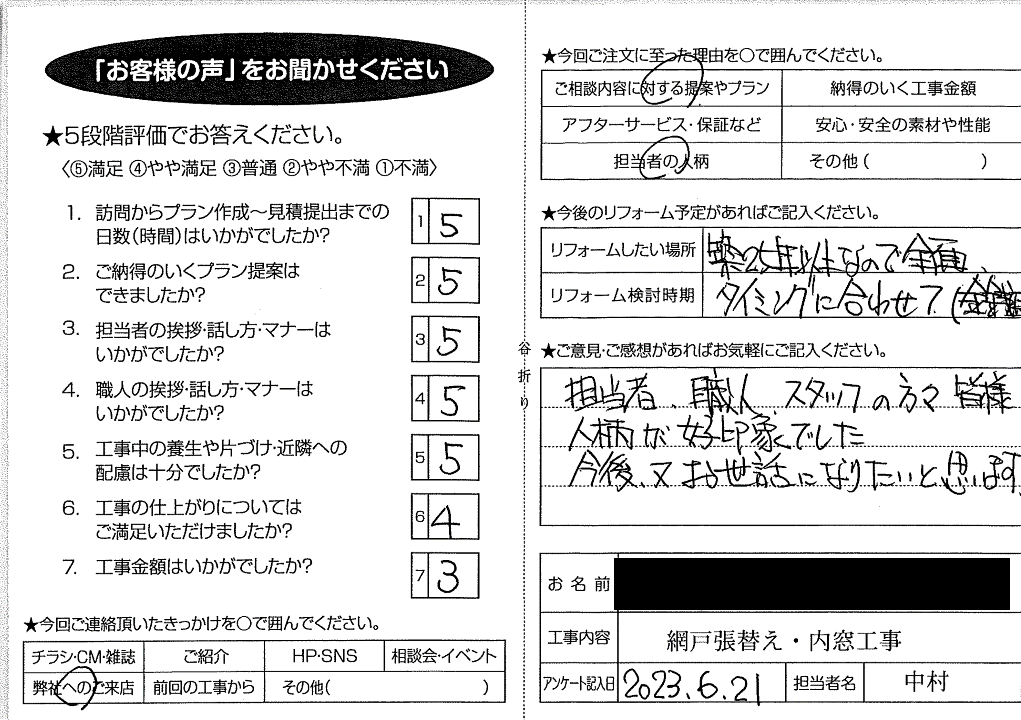 「お客様の声」をお聞かせください
★5段階評価でお答えください。
〈⑤満足 ④やや満足 ③普通 ②やや不満 ①不満〉
1. 訪問からプラン作成〜見積提出までの
日数(時間)はいかがでしたか?
1 5
2. ご納得のいくプラン提案は
できましたか?
2 5
3. 担当者の挨拶・話し方・マナーは
いかがでしたか?
3 5
4. 職人の挨拶・話し方・マナーは
いかがでしたか?
4 5
5. 工事中の養生や片づけ・近隣への
配慮は十分でしたか?
5 5
6. 工事の仕上がりについては
ご満足いただけましたか?
6 4
7. 工事金額はいかがでしたか?
7 3
★今回ご連絡頂いたきっかけを〇で囲んでください。
チラシ・CM・雑誌 ご紹介 HP・SNS 相談会・イベント
弊社へのご来店 前回の工事から その他( )
谷折り
★今回ご注文に至った理由を〇で囲んでください。
ご相談内容に対する提案やプラン 納得のいく工事金額
アフターサービス・保証など 安心・安全の素材や性能
担当者の人柄 その他( )
★今後のリフォーム予定があればご記入ください。
リフォームしたい場所 築25年以上なので全面、
リフォーム検討時期 タイミングに合わせて(
★ご意見・ご感想があればお気軽にご記入ください。
担当者、職人、スタッフの方々皆様
人柄が好印象でした
今後、又お世話になりたいと思います
お名前
工事内容 網戸張替え・内窓工事
アンケート記入日 2023.6.21 担当者名 中村